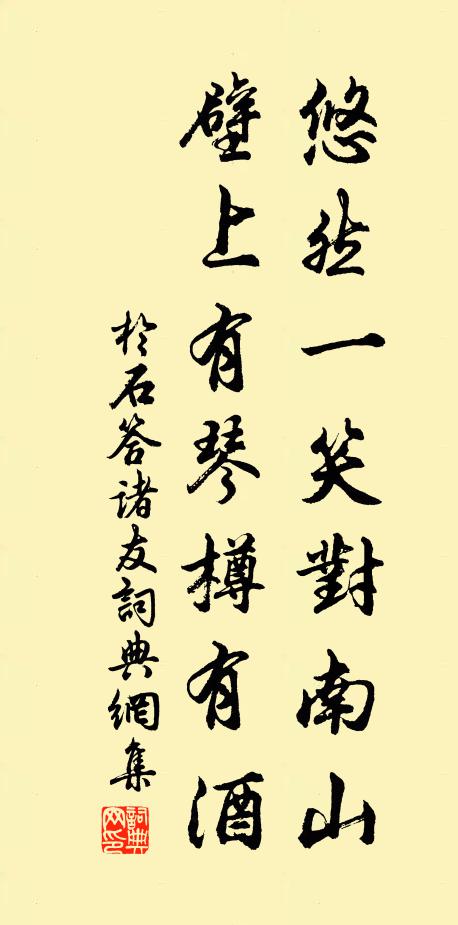 悠然一笑對南山
壁上有琴樽有酒
於石答諸友詞典網集
詞典
网印